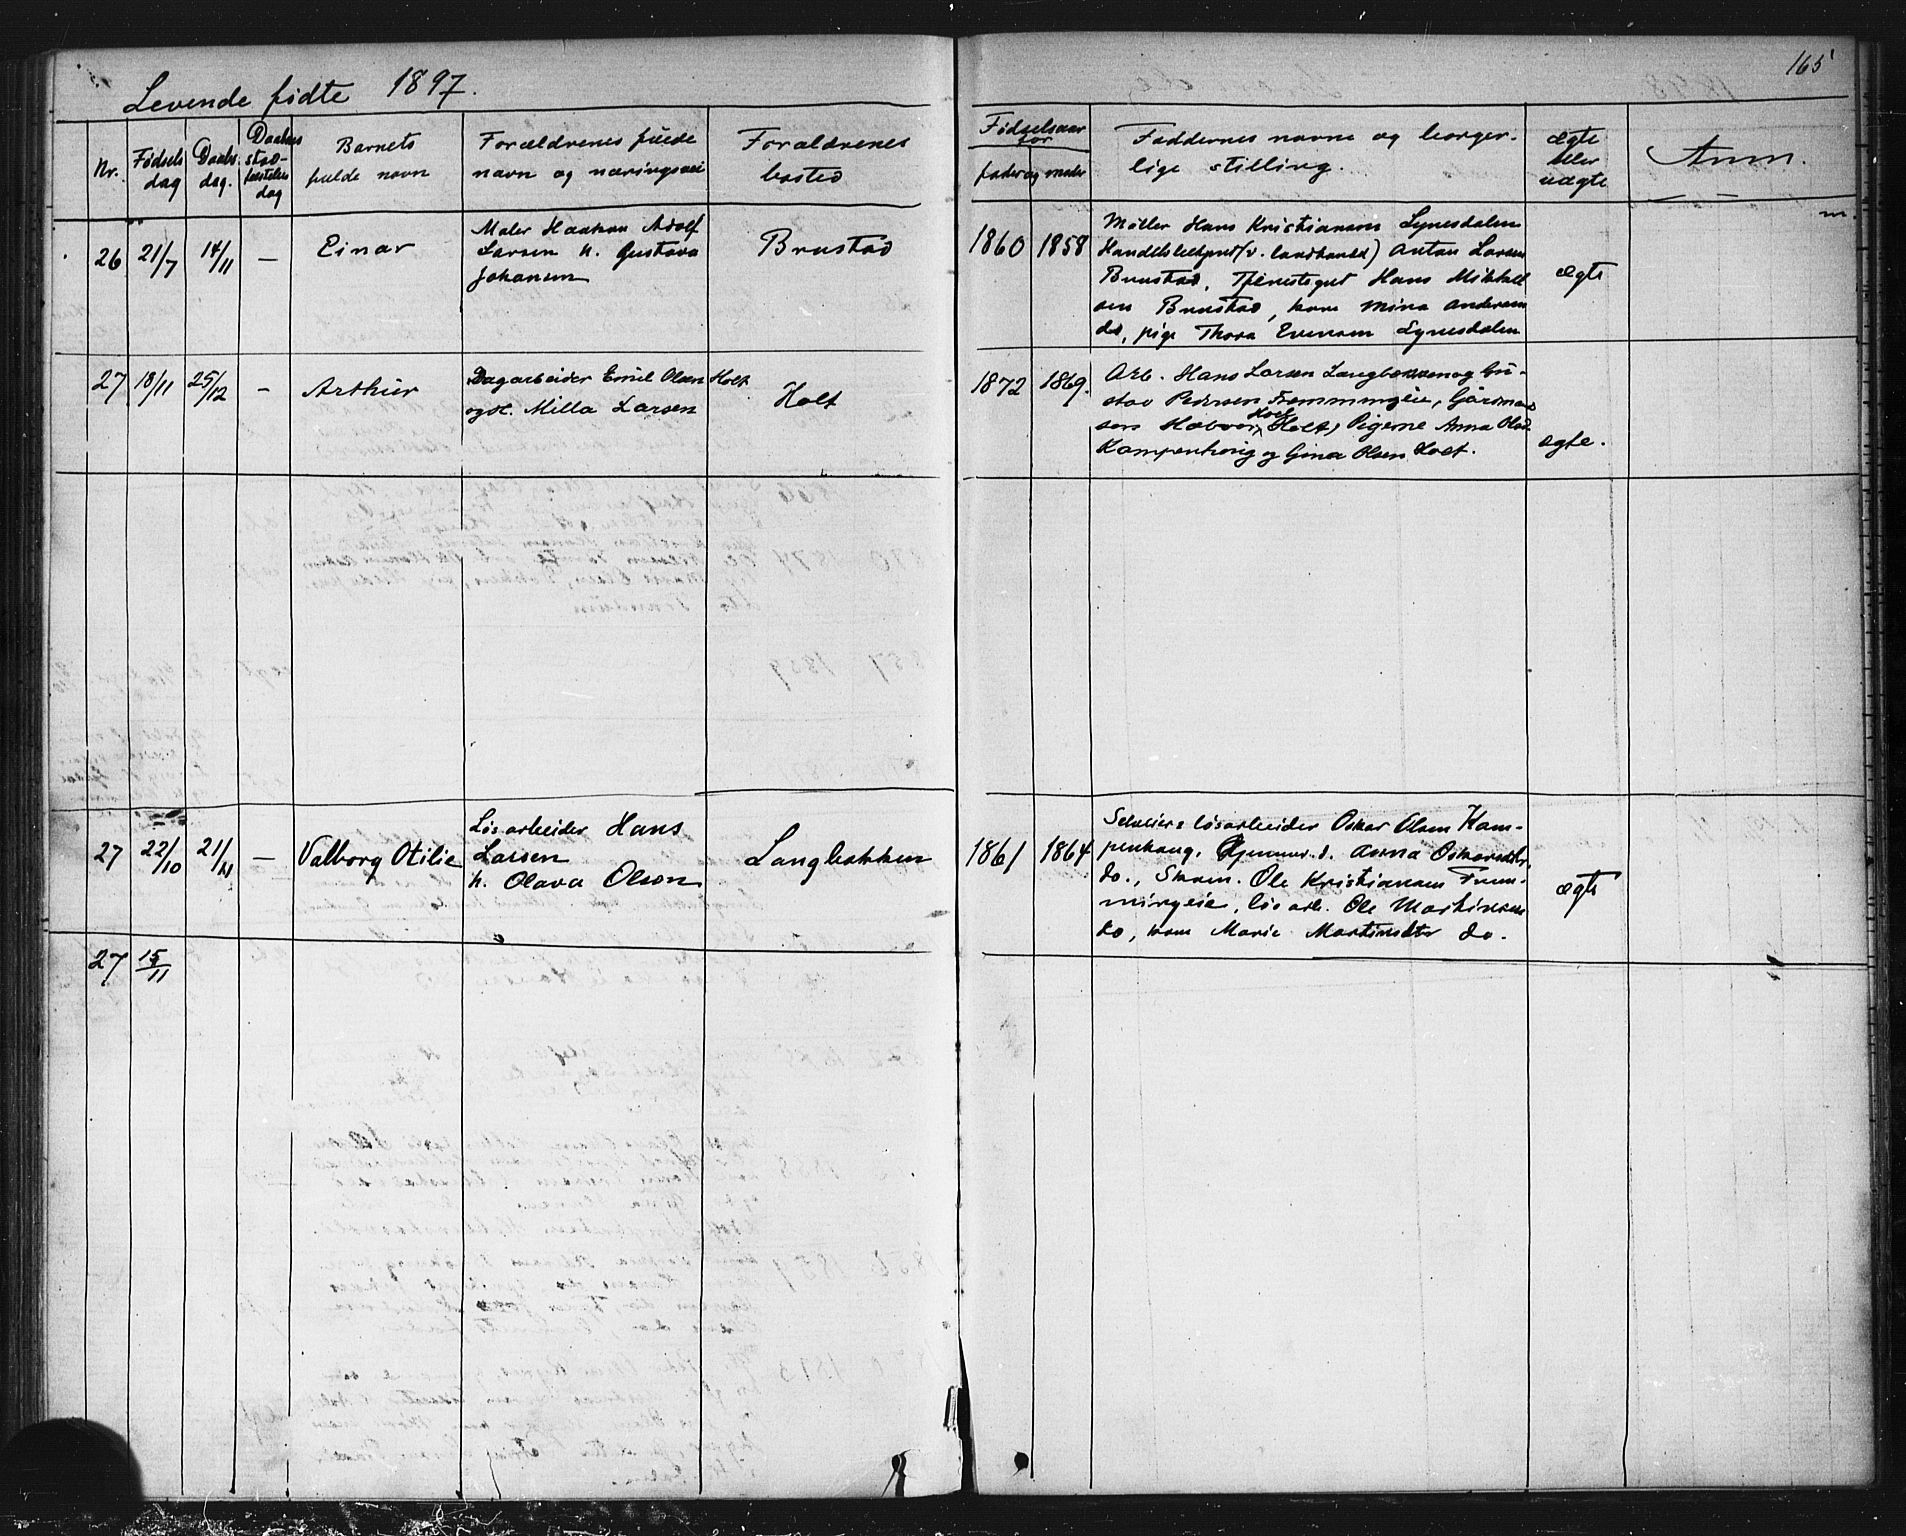 165
Levende fødte 1897.
Nr.
Fødsels
dag
Daabs
dag.
Daabens
stad-
fæstelses
dag
Barnets
fulde navn
Forældrenes fulde
navn og næringsvei
Forældrenes
bosted
Fødselsaar
for
fader og moder
Faddernes navne og borger-
lige stilling.
ægte
eller
uægte
Anm.
26 21/7 14/11 — Einar
Maler Haakon Adolf
Larsen h. Gustava
Johansen
Brustad
1860 1858
Møller Hans Kristiansen Lynesdalen
(v. landhandel) Anton Larsen
Brustad, Tjenestegut Hans Mikkel
sen Brustad, kone Mina Andersen
do, pige Thora Evensen Lynesdalen
ægte
27 18/11 25/12 — Arthur
Dagarbeider Emil Olsen Holt
og h. Milla Larsen
Holt
1872 1869.
Arb. Hans Larsen Langbakken og Gu-
stav Pedersen Fremmingeie,
Holt, Pigerne Anna Olsd.
Kampenhoug og Gina Olsen Holt.
ægte.
27 22/10 21/11 — Valborg Otilie
Løsarbeider Hans
Larsen
h. Olava Olson
Langbakken
1861 1864
Selveier & løsarbeider Oskar Olsen Kam-
penhaug, Anna
do., Skom. Ole Kristiansen Frem-
mingeie, løsarb. Ole Martinsen
do, kone Marie Martinsdtr do.
ægte
27 15/11